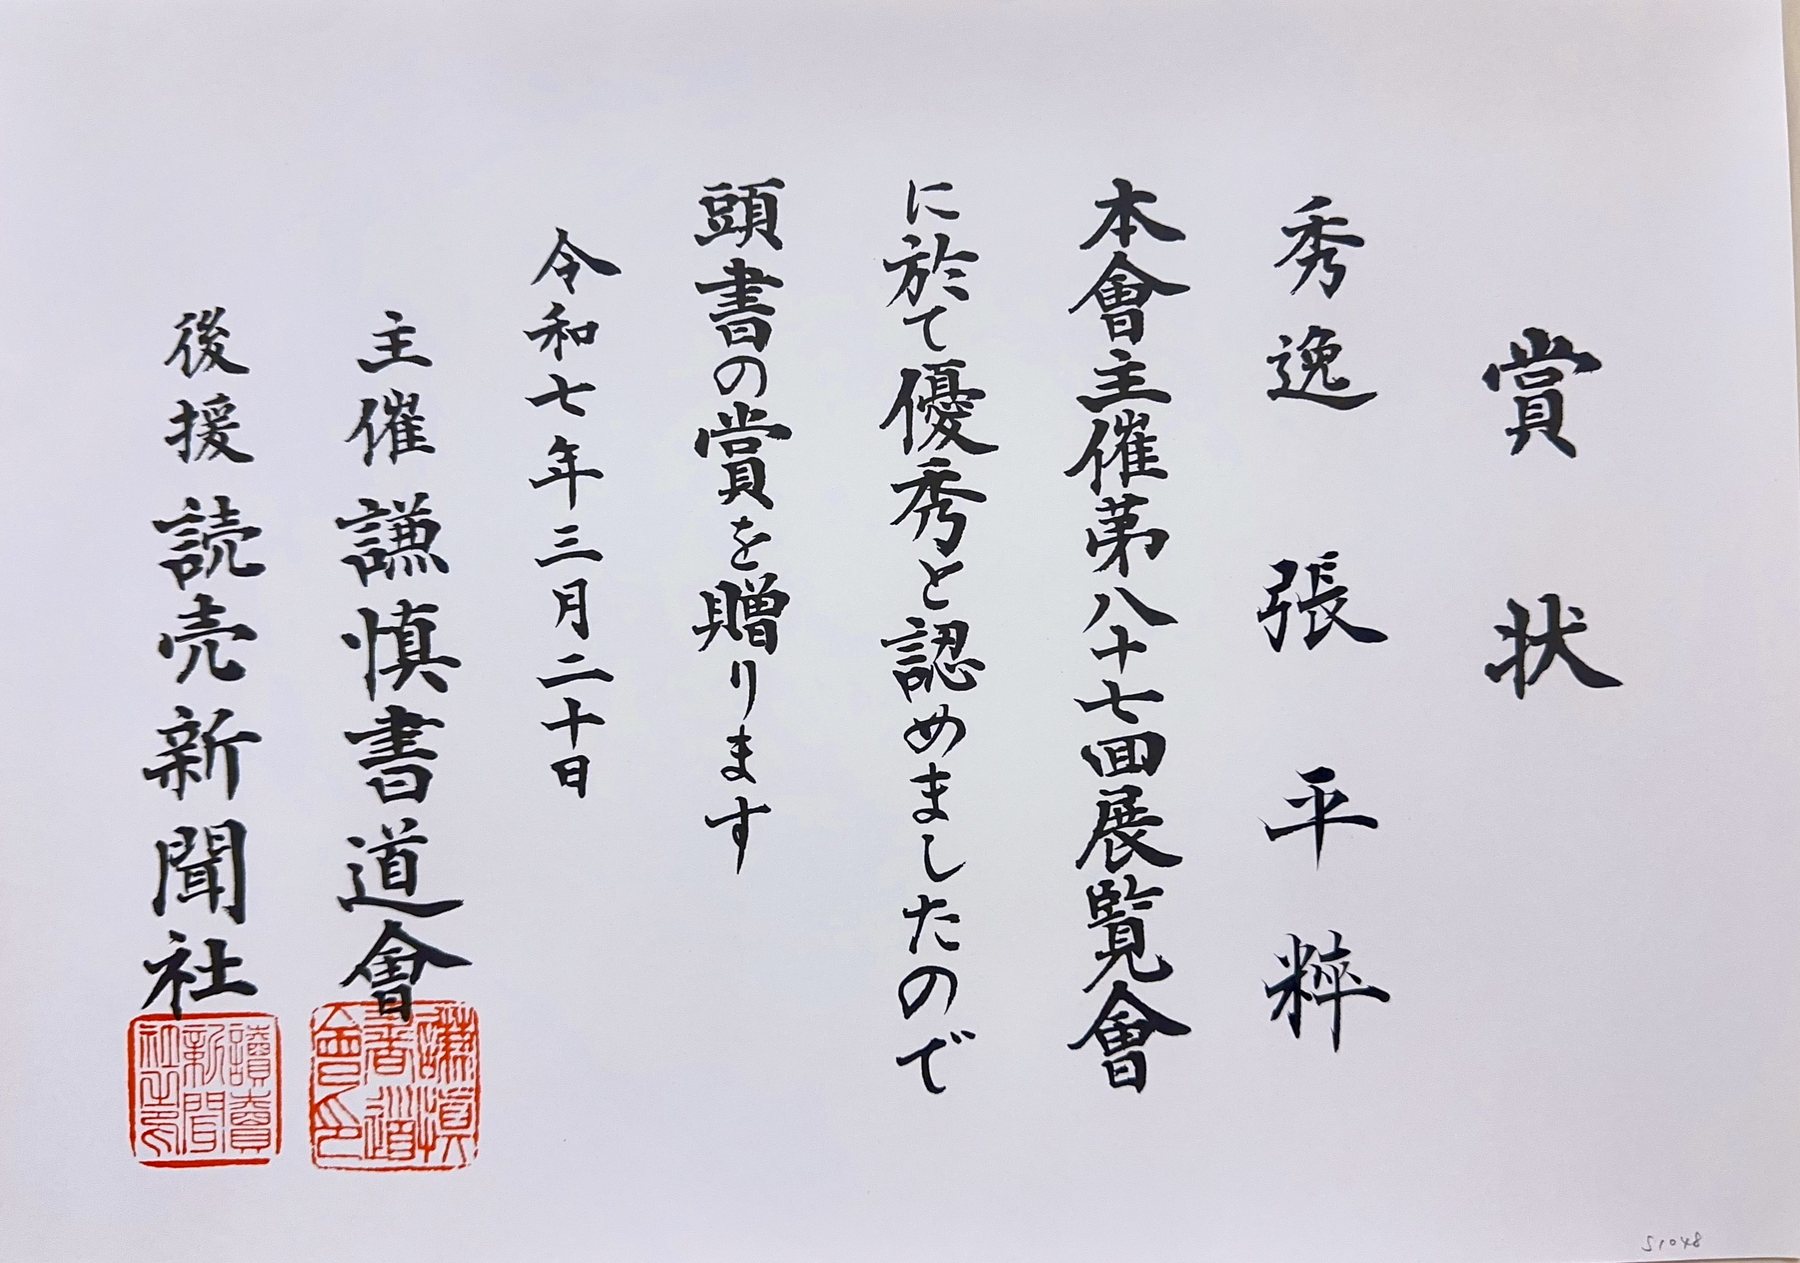 賞状
秀逸 張平粹
本會主催第八十七回展覧會
に於て優秀と認めましたので
頭書の賞を贈ります
令和七年三月二十日
主催 謙慎書道會
後援 読売新聞社
謙慎書道會印
讀賣新聞社之印
S1048